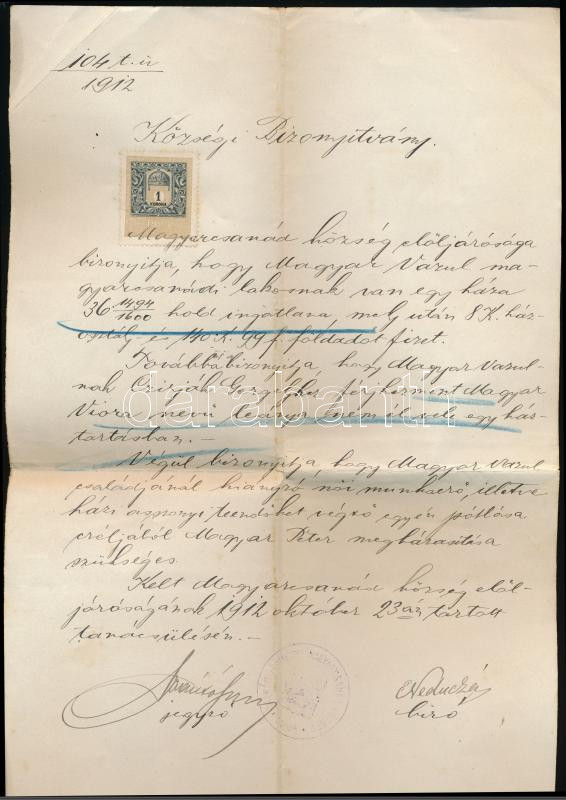 104 t. ü
1912
Községi Bizonyitvány.
1
KORONA
Magyarcsanád község elöljárósága
bizonyitja, hogy Magyar Vazul ma-
gyarcsanádi lakosnak van egy háza
36 1494/1600 hold ingatlana, mely után 8 K. ház-
osztály és 140 K. 99 f. földadót fizet.
Továbbá bizonyitja, hogy Magyar Vazul-
nak Czizják Gergelyhez férjhezment Magyar
Viora nevü leánya nem él vele egy ház-
tartásban. –
Végül bizonyitja, hogy Magyar Vazul
családjánál hiányzó női munkaerő, illetve
házi asszonyi teendőket végző egyén pótlása
czéljából Magyar Péter megházasitása
szükséges.
Kelt Magyarcsanád község elöl-
járóságának 1912 október 23-án tartott
tanácsülésén. –
jegyző
biró
darabanth